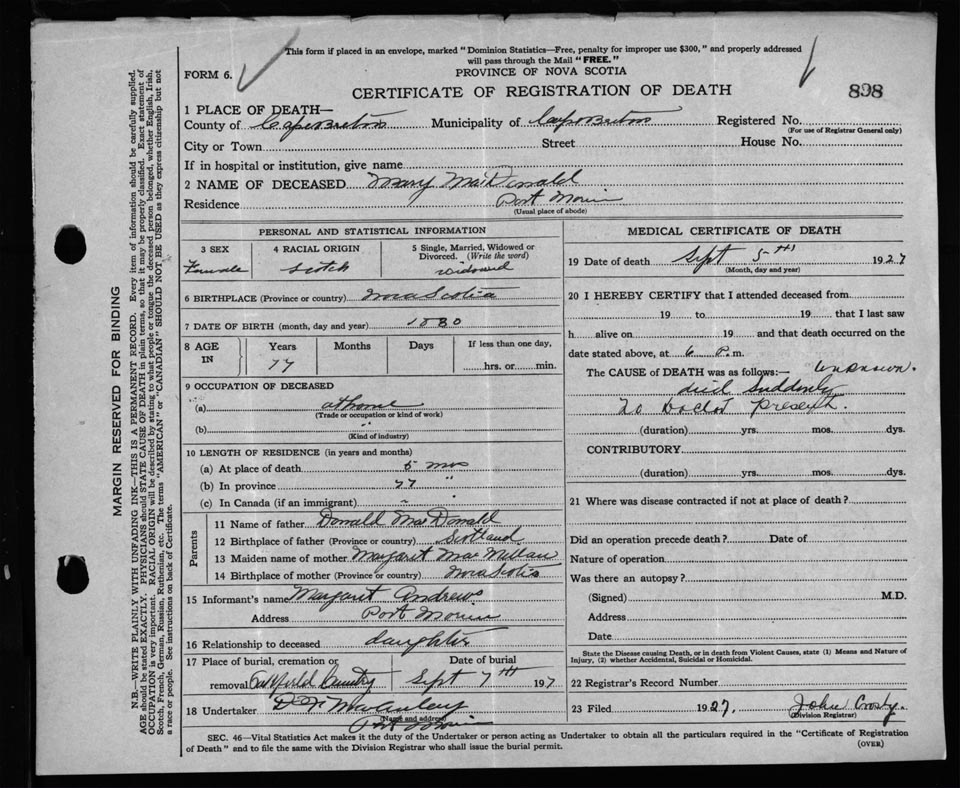 This form if placed in an envelope, marked "Dominion Statistics—Free, penalty for improper use $300," and properly addressed
will pass through the Mail "FREE."
FORM 6.
PROVINCE OF NOVA SCOTIA
CERTIFICATE OF REGISTRATION OF DEATH
898
1 PLACE OF DEATH—
County of Cape Breton Municipality of Cape Breton Registered No.
(For use of Registrar General only)
City or Town Street House No.
If in hospital or institution, give name
2 NAME OF DECEASED Mary MacDonald
Residence Port Morien
(Usual place of abode)
PERSONAL AND STATISTICAL INFORMATION
3 SEX 4 RACIAL ORIGIN 5 Single, Married, Widowed or Divorced. (Write the word)
Female Scotch widowed
6 BIRTHPLACE (Province or country) Nova Scotia
7 DATE OF BIRTH (month, day and year)
8 AGE IN Years Months Days If less than one day,
77 hrs. or min.
9 OCCUPATION OF DECEASED
(a) at home
(Trade or occupation or kind of work)
(b) "
(Kind of industry)
10 LENGTH OF RESIDENCE (in years and months)
(a) At place of death 5 mos
(b) In province 77 "
(c) In Canada (if an immigrant) "
Parents
11 Name of father Donald MacDonald
12 Birthplace of father (Province or country) Scotland
13 Maiden name of mother Margaret MacMillan
14 Birthplace of mother (Province or country) Nova Scotia
15 Informant's name Margaret Andrews
Address Port Morien
16 Relationship to deceased daughter
17 Place of burial, cremation or removal Cemetry
Date of burial Sept 7th 192
18 Undertaker D N MacAuley
(Name and address)
Port Morien
MEDICAL CERTIFICATE OF DEATH
19 Date of death Sept 5th 1927
(Month, day and year)
20 I HEREBY CERTIFY that I attended deceased from
19 to 19 that I last saw
h alive on 19 and that death occurred on
date stated above, at 6 P.m.
The CAUSE of DEATH was as follows:— unknown.
died Suddenly
No Doctor present.
(duration) yrs. mos. dys.
CONTRIBUTORY
(duration) yrs. mos. dys.
21 Where was disease contracted if not at place of death?
Did an operation precede death? Date of
Nature of operation
Was there an autopsy?
(Signed) M.D.
Address
Date
State the Disease causing Death, or in death from Violent Causes, state (1) Means and Nature of
Injury, (2) whether Accidental, Suicidal or Homicidal.
22 Registrar's Record Number
23 Filed 1927. John Crosby.
(Division Registrar)
SEC. 46—Vital Statistics Act makes it the duty of the Undertaker or person acting as Undertaker to obtain all the particulars required in the "Certificate of Registration
of Death" and to file the same with the Division Registrar who shall issue the burial permit.
(OVER)
MARGIN RESERVED FOR BINDING
N.B.—WRITE PLAINLY WITH UNFADING INK—THIS IS A PERMANENT RECORD. Every item of information should be carefully supplied.
AGE should be stated EXACTLY. PHYSICIANS should STATE CAUSE OF DEATH in plain terms, so that it may be properly classified. Exact statement of
OCCUPATION is very important. RACIAL ORIGIN will be described by stating to what people or tongue the deceased person belonged, whether English, Irish,
Scotch, French, German, Russian, Ruthenian, etc. The terms "AMERICAN" or "CANADIAN" SHOULD NOT BE USED as they express citizenship but not
a race or people. See instructions on back of Certificate.